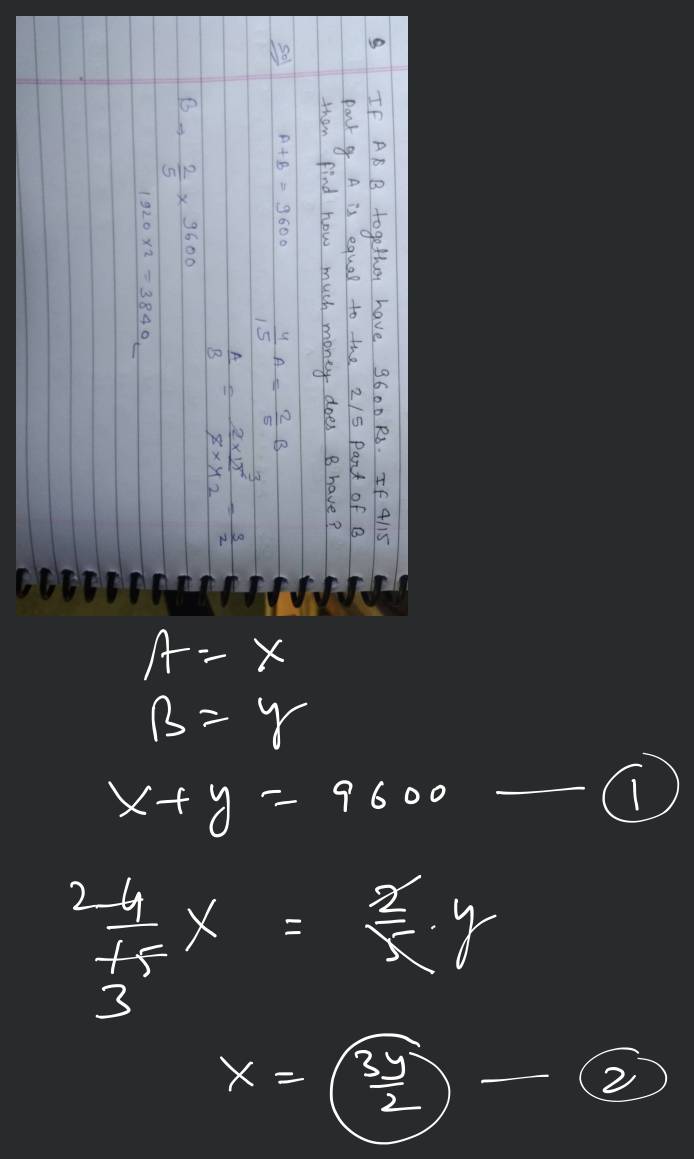 Q If A & B together have 9600 Rs. If 4/15
part of A is equal to the 2/5 part of B
then find how much money does B have?
Sol A+B = 9600 4/15 A = 2/5 B
A/B = 2×15 3/5×4 2 = 3/2
B → 2/5 × 9600
1920 x2 = 3840
A = x
B = y
x+y = 9600 — 1
2 4/15 3 x = 2/5 . y
x = 3y/2 — 2